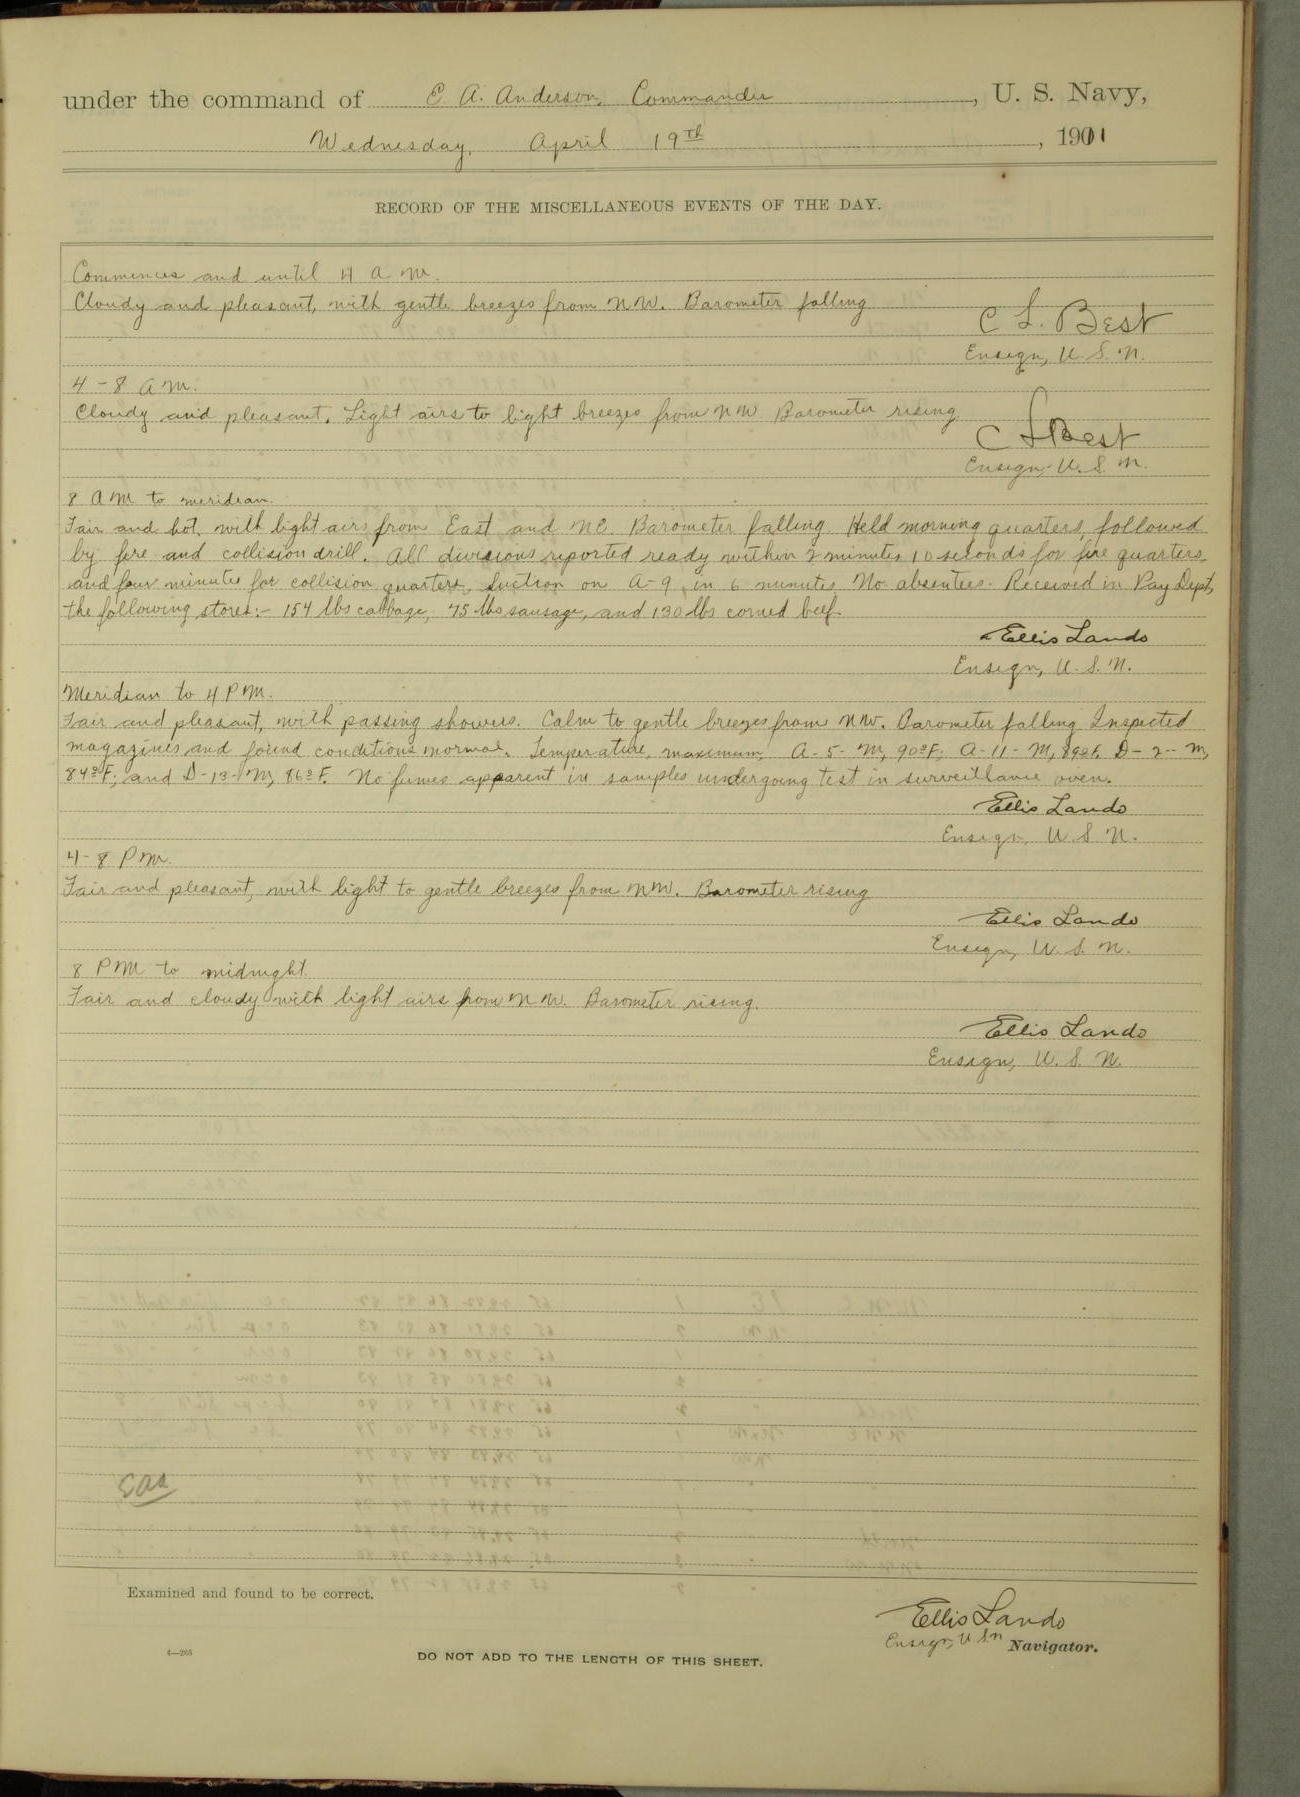 under the command of E A. Anderson, Commander, U. S. Navy,
Wednesday, April 19th, 1911
RECORD OF THE MISCELLANEOUS EVENTS OF THE DAY.
Commences and until 4 A M.
Cloudy and pleasant, with gentle breezes from NW. Barometer falling
C L. Best
Ensign, U. S. N.
4 - 8 A M.
Cloudy and pleasant. Light airs to light breezes from NW Barometer rising
C L Best
Ensign, U. S. N.
8 A M to meridian.
Fair and hot, with light airs from East and NE. Barometer falling. Held morning quarters, followed
by fire and collision drill. All divisions reported ready within 2 minutes 10 seconds for fire quarters,
and four minutes for collision quarters, Suction on A-9, in 6 minutes. No absentees. Received in Pay Dept,
the following stores:- 154 lbs cabbage, 75 lbs sausage, and 130 lbs corned beef
Ellis Lando
Ensign, U. S. N.
Meridian to 4 P M.
Fair and pleasant, with passing showers. Calm to gentle breezes from NW. Barometer falling. Inspected
magazines and found conditions normal. Temperature, maximum, A-5-M, 90°F; A-11-M, 89°F, D-2-M,
84°F; and D-13-M, 86°F. No fumes apparent in samples undergoing test in surveillance oven.
Ellis Lando
Ensign, U. S. N.
4 - 8 P M.
Fair and pleasant, with light to gentle breezes from NW. Barometer rising
Ellis Lando
Ensign, U. S. N.
8 P M to midnight.
Fair and cloudy with light airs from NW. Barometer rising.
Ellis Lando
Ensign, U. S. N.
EAA
Examined and found to be correct.
Ellis Lando
Ensign, U S N Navigator.
4—265
DO NOT ADD TO THE LENGTH OF THIS SHEET.